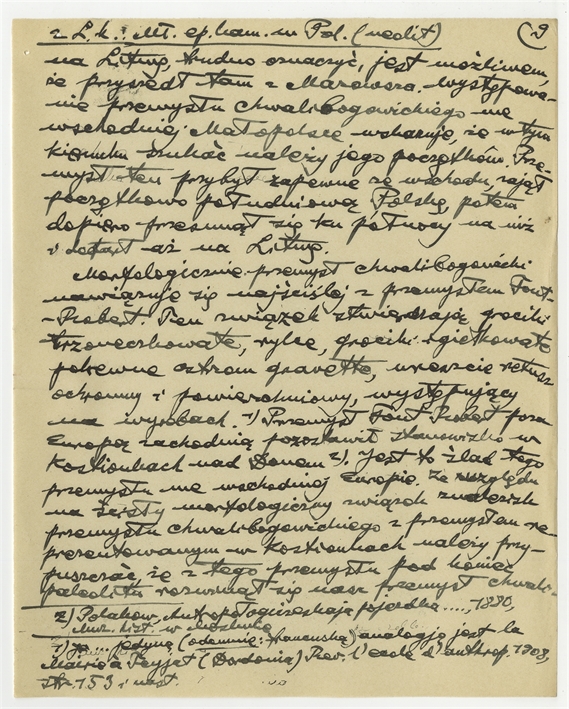 z L.k.: Mł. ep. kam. w Pol. (nedit) (9
na Litwę, trudno oznaczyć, jest możliwem,
że przyszedł tam z Mazowsza. Występowa-
nie przemysłu chwalibogowickiego we
wschodniej Małopolsce wskazuje, że w tym
kierunku szukać należy jego początków. Prze-
mysł ten przybył zapewne ze wschodu, zajął
początkowo południową Polskę, potem
dopiero przesunął się ku północy na niż
i dotarł aż na Litwę.
Morfologicznie przemysł chwalibogowicki
nawiązuje się najściślej z przemysłem Font-
-Robert. Ten związek stwierdzają grociki
trzoneczkowate, rylce, grociki igiełkowate
pokrewne ostrzom gravette, wreszcie retusz
ochronny i powierzchniowy, występujący
na wyrobach. 1) Przemysł Font-Robert poza
Europą zachodnią pozostawił stanowisko w
Kostionkach nad Donem 2). Jest to ślad tego
przemysłu we wschodniej Europie. Ze względu
na ścisły morfologiczny związek znalezisk
przemysłu chwalibogowickiego z przemysłem re-
prezentowanym w Kostionkach należy przy-
puszczać, że z tego przemysłu pod koniec
paleolitu rozwinął się nasz przemysł chwali-
2) Polakow, Antropołogiczeskaja pojezdka...., 1880,
Muz. hist. w
1) .... jedyną (odemnie: ) analogję jest la
Mairie à Teyjat (Dordonia) Rev. l'école d'anthrop. 1908,
str. 153 i nast.